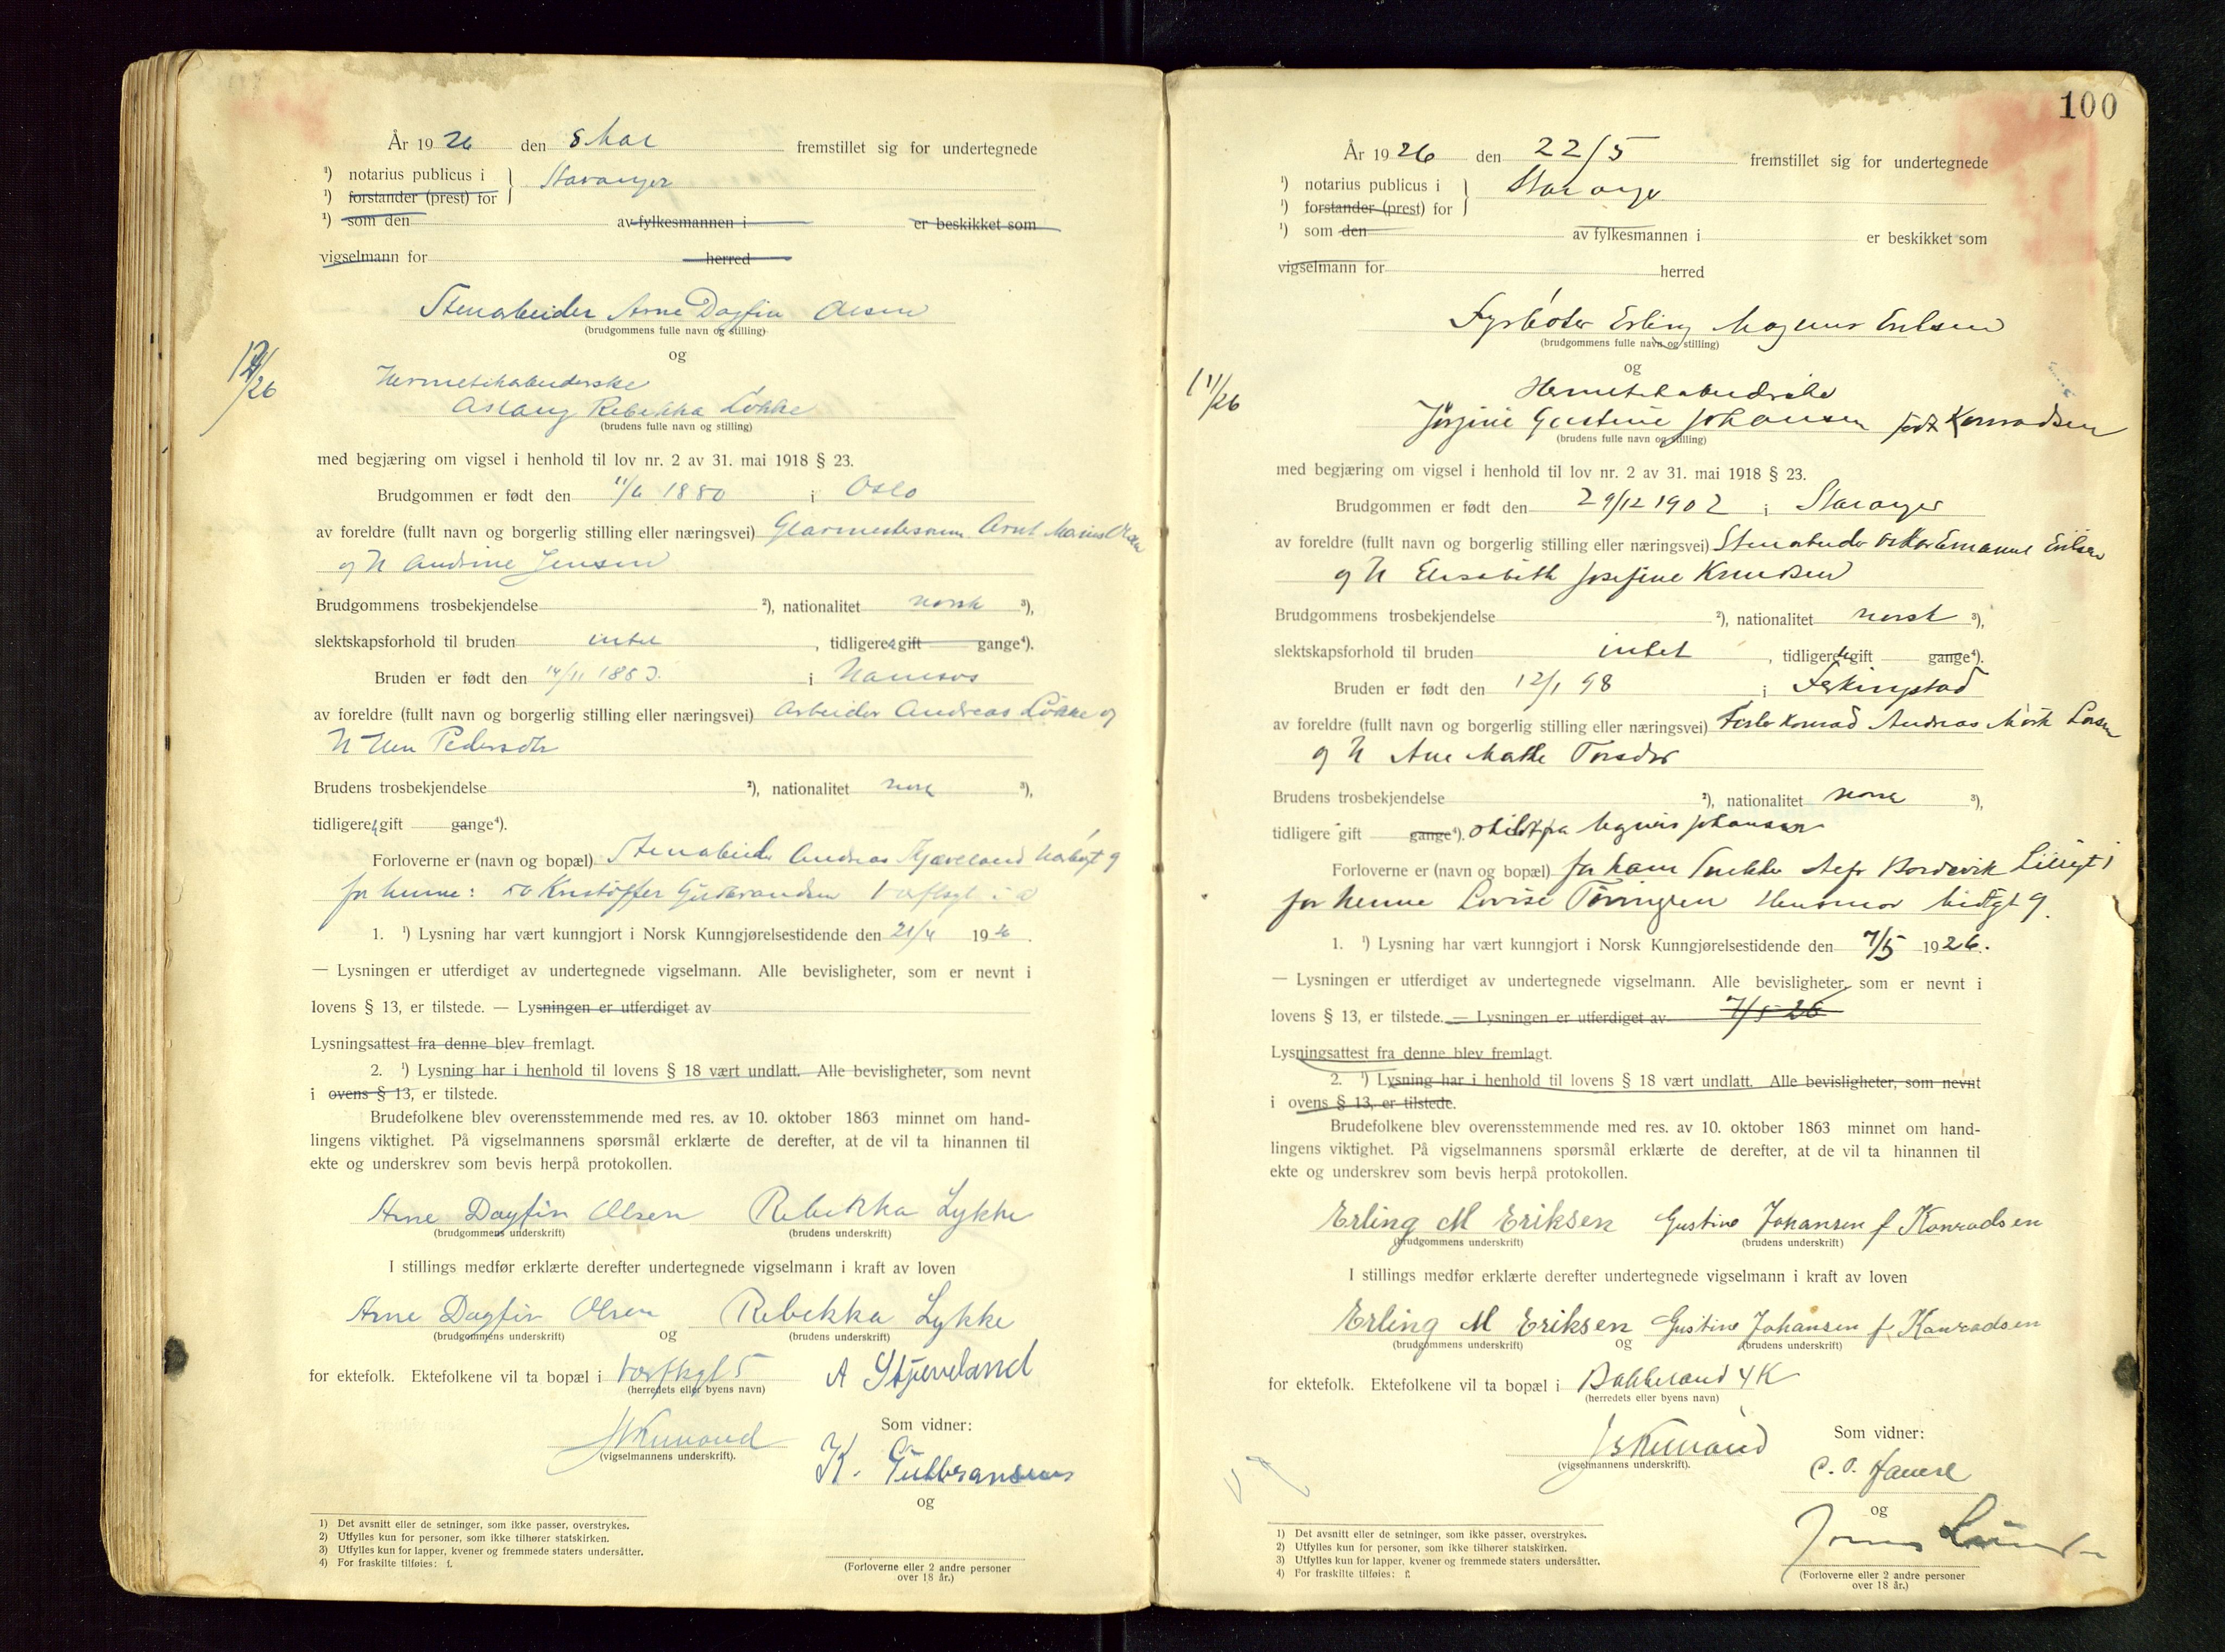 År 1926 den 8 Mai fremstillet sig for undertegnede
¹) notarius publicus i } Stavanger
¹) forstander (prest) for
¹) som den av fylkesmannen i er beskikket som
vigselmann for herred
Stenarbeider Arne Dagfin Olsen
(brudgommens fulle navn og stilling)
og
12/26
Hermetikarbeiderske
Aslaug Rebekka Løkke
(brudens fulle navn og stilling)
med begjæring om vigsel i henhold til lov nr. 2 av 31. mai 1918 § 23.
Brudgommen er født den 11/6 1880 i Oslo
av foreldre (fullt navn og borgerlig stilling eller næringsvei) Glarmestersvenn Arnt Marius Olsen
og H Andrine Jensen
Brudgommens trosbekjendelse ²), nationalitet norsk ³),
slektskapsforhold til bruden intet , tidligere gift gange⁴).
Bruden er født den 14/11 1883. i Namsos
av foreldre (fullt navn og borgerlig stilling eller næringsvei) Arbeider Andreas Løkke og
H Pedersdtr
Brudens trosbekjendelse ²), nationalitet norsk ³),
tidligere gift gange⁴).
Forloverne er (navn og bopæl) Stenarbeider Andreas Stjæveland 9
for henne: Kristoffer Guldbrandsen
1. ¹) Lysning har vært kunngjort i Norsk Kunngjørelsestidende den 21/4 1926.
— Lysningen er utferdiget av undertegnede vigselmann. Alle bevisligheter, som er nevnt i
lovens § 13, er tilstede. — Lysningen er utferdiget av
Lysningsattest fra denne blev fremlagt.
2. ¹) Lysning har i henhold til lovens § 18 vært undlatt. Alle bevisligheter, som nevnt
i ovens § 13, er tilstede.
Brudefolkene blev overensstemmende med res. av 10. oktober 1863 minnet om hand-
lingens viktighet. På vigselmannens spørsmål erklærte de derefter, at de vil ta hinannen til
ekte og underskrev som bevis herpå protokollen.
Arne Dagfin Olsen Rebekka Lykke
(brudgommens underskrift) (brudens underskrift)
I stillings medfør erklærte derefter undertegnede vigselmann i kraft av loven
Arne Dagfin Olsen Rebekka Lykke
(brudgommens underskrift) og (brudens underskrift)
for ektefolk. Ektefolkene vil ta bopæl i 5 A Stjeveland
(herredets eller byens navn)
Som vidner:
K. Gulbransens
(vigselmannens underskrift).
og
1) Det avsnitt eller de setninger, som ikke passer, overstrykes.
2) Utfylles kun for personer, som ikke tilhører statskirken.
3) Utfylles kun for lapper, kvener og fremmede staters undersåtter.
4) For fraskilte tilføies: f.
(Forloverne eller 2 andre personer
over 18 år.)
100
År 1926 den 22/5 fremstillet sig for undertegnede
¹) notarius publicus i } Stavanger
¹) forstander (prest) for
¹) som den av fylkesmannen i er beskikket som
vigselmann for herred
Fyrbøter Erling Magnus Eriksen
(brudgommens fulle navn og stilling)
og
11/26
Hermetikarbeiderske
Jørgine Gustine Johansen født Konradsen
(brudens fulle navn og stilling)
med begjæring om vigsel i henhold til lov nr. 2 av 31. mai 1918 § 23.
Brudgommen er født den 29/12 1902 i Stavanger
av foreldre (fullt navn og borgerlig stilling eller næringsvei) Stenarbeider Oskar Emanuel Eriksen
og H Elisabeth Josefine Knudsen
Brudgommens trosbekjendelse ²), nationalitet norsk ³),
slektskapsforhold til bruden intet , tidligere gift gange⁴).
Bruden er født den 12/1 98 i Ferkingstad
av foreldre (fullt navn og borgerlig stilling eller næringsvei) Fisker Konrad Andreas Mørk Larsen
og H Ane Malle Torsdtr
Brudens trosbekjendelse ²), nationalitet norsk ³),
tidligere gift gange⁴). skilt fra Magnus Johansen
Forloverne er (navn og bopæl) for ham Snekker Bordevik
for henne Lovise 9.
1. ¹) Lysning har vært kunngjort i Norsk Kunngjørelsestidende den 7/5 1926.
— Lysningen er utferdiget av undertegnede vigselmann. Alle bevisligheter, som er nevnt i
lovens § 13, er tilstede. — Lysningen er utferdiget av 7/5-26
Lysningsattest fra denne blev fremlagt.
2. ¹) Lysning har i henhold til lovens § 18 vært undlatt. Alle bevisligheter, som nevnt
i ovens § 13, er tilstede.
Brudefolkene blev overensstemmende med res. av 10. oktober 1863 minnet om hand-
lingens viktighet. På vigselmannens spørsmål erklærte de derefter, at de vil ta hinannen til
ekte og underskrev som bevis herpå protokollen.
Erling M Eriksen Gustine Johansen f Konradsen
(brudgommens underskrift) (brudens underskrift)
I stillings medfør erklærte derefter undertegnede vigselmann i kraft av loven
Erling M Eriksen Gustine Johansen f. Konradsen
(brudgommens underskrift) og (brudens underskrift)
for ektefolk. Ektefolkene vil ta bopæl i Bakkeland 4 K
(herredets eller byens navn)
Som vidner:
(vigselmannens underskrift).
og
1) Det avsnitt eller de setninger, som ikke passer, overstrykes.
2) Utfylles kun for personer, som ikke tilhører statskirken.
3) Utfylles kun for lapper, kvener og fremmede staters undersåtter.
4) For fraskilte tilføies: f.
(Forloverne eller 2 andre personer
over 18 år.)